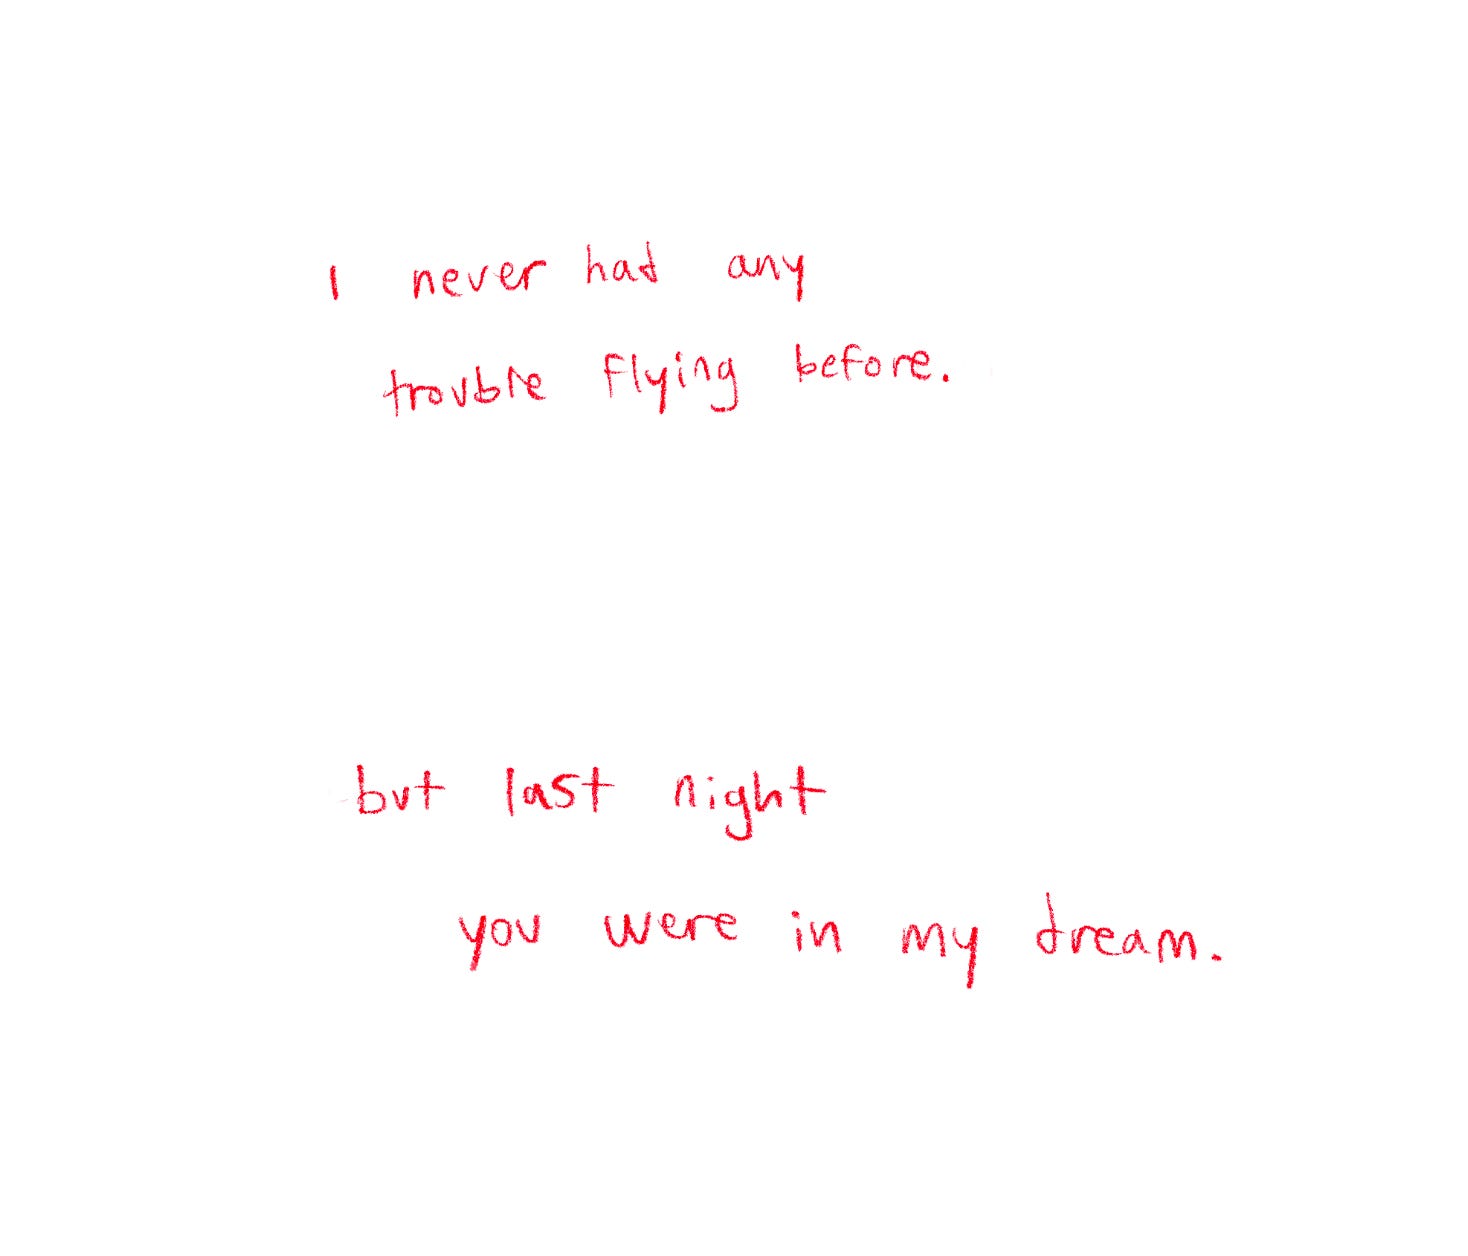 I never had any
trouble flying before.
but last night
you were in my dream.